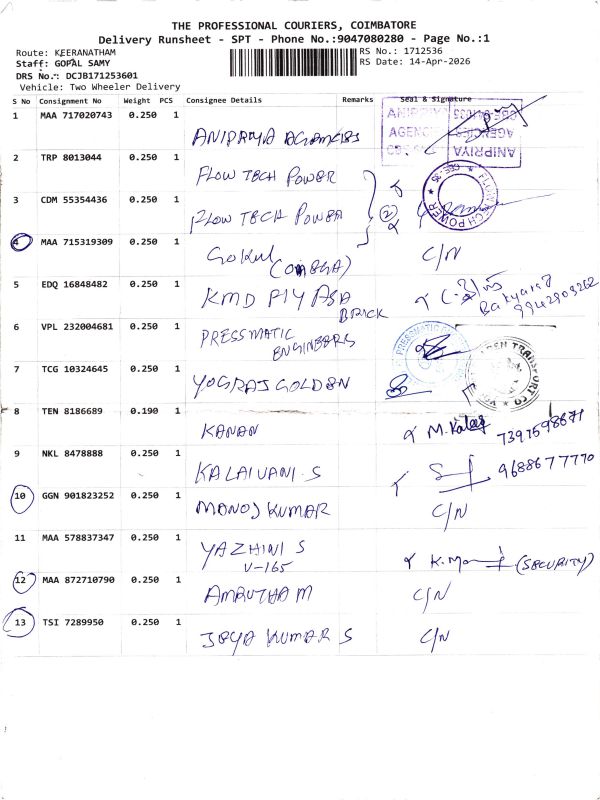 THE PROFESSIONAL COURIERS, COIMBATORE
Delivery Runsheet - SPT - Phone No.:9047080280 - Page No.:1
Route: KEERANATHAM
Staff: GOPAL SAMY
DRS No.: DCJB171253601
Vehicle: Two Wheeler Delivery
RS No.: 1712536
RS Date: 14-Apr-2026
S No Consignment No Weight PCS Consignee Details Remarks Seal & Signature
1 MAA 717020743 0.250 1
ANIPRIYA AGENCIES
2 TRP 8013044 0.250 1 FLOW TECH POWER
3 CDM 55354436 0.250 1 FLOW TECH POWER 2
4 MAA 715319309 0.250 1 Gokul (OMEGA) C/N
5 EDQ 16848482 0.250 1 KMD FLY ASH BRICK
6 VPL 232004681 0.250 1 PRESSMATIC ENGINEERS
7 TCG 10324645 0.250 1 YOGRAJ GOLDEN
8 TEN 8186689 0.190 1 KANAN M. 
9 NKL 8478888 0.250 1 KALAIVANI.S 9688677770
10 GGN 901823252 0.250 1 MANOJ KUMAR C/N
11 MAA 578837347 0.250 1 YAZHINI S V-165 (SECURITY)
12 MAA 872710790 0.250 1 AMRUTHA M C/N
13 TSI 7289950 0.250 1 JAYA KUMAR S C/N